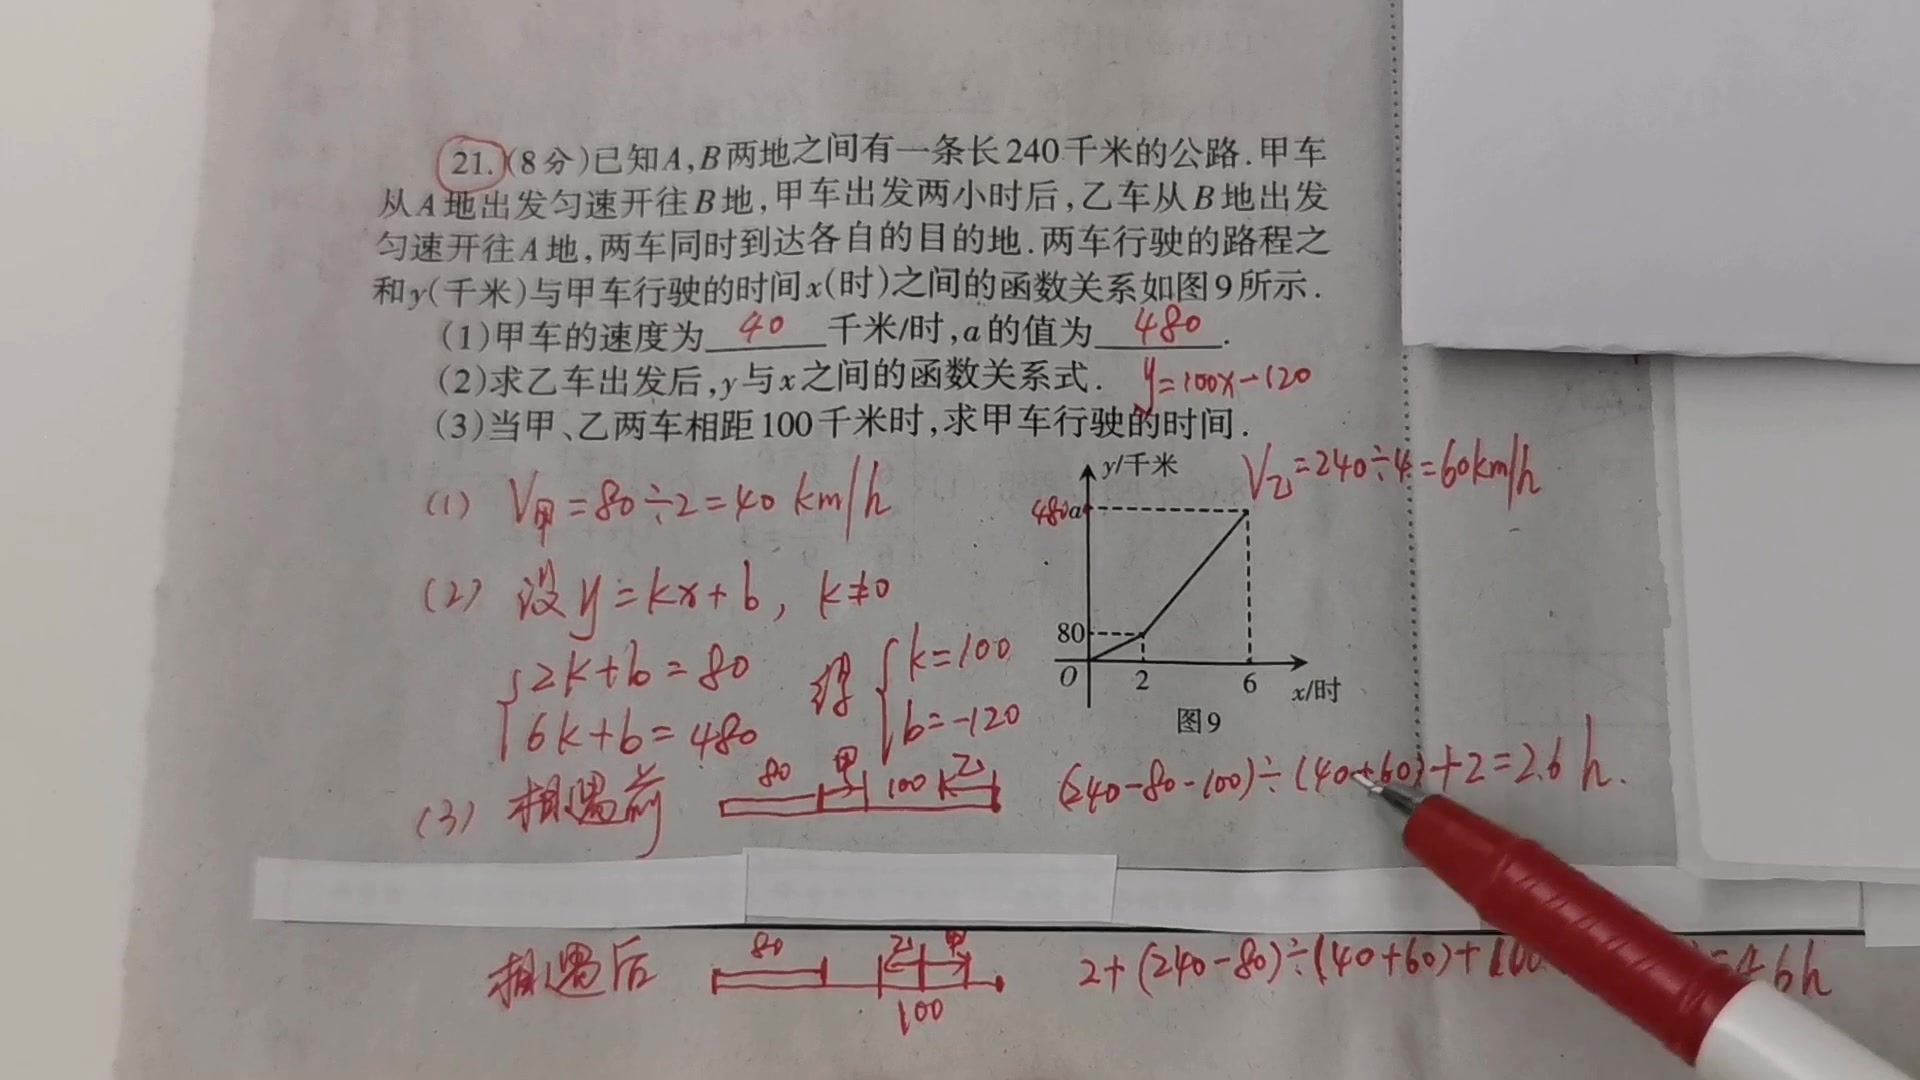 21.(8分)已知A,B两地之间有一条长240千米的公路.甲车
从A地出发匀速开往B地,甲车出发两小时后,乙车从B地出发
匀速开往A地,两车同时到达各自的目的地.两车行驶的路程之
和y(千米)与甲车行驶的时间x(时)之间的函数关系如图9所示.
(1)甲车的速度为 40 千米/时,a的值为 480 .
(2)求乙车出发后,y与x之间的函数关系式. y=100x-120
(3)当甲、乙两车相距100千米时,求甲车行驶的时间.
y/千米
V乙=240÷4=60km/h
(1) V甲=80÷2=40 km/h
480a
(2) 设y=kx+b, k≠0
80
O 2 6 x/时
图9
2k+b=80
6k+b=480
得 k=100
b=-120
(3) 相遇前 80 甲 100 乙 (240-80-100)÷(40+60)+2=2.6 h.
相遇后 80 乙 甲 100 2+(240-80)÷(40+60)+100 =4.6h